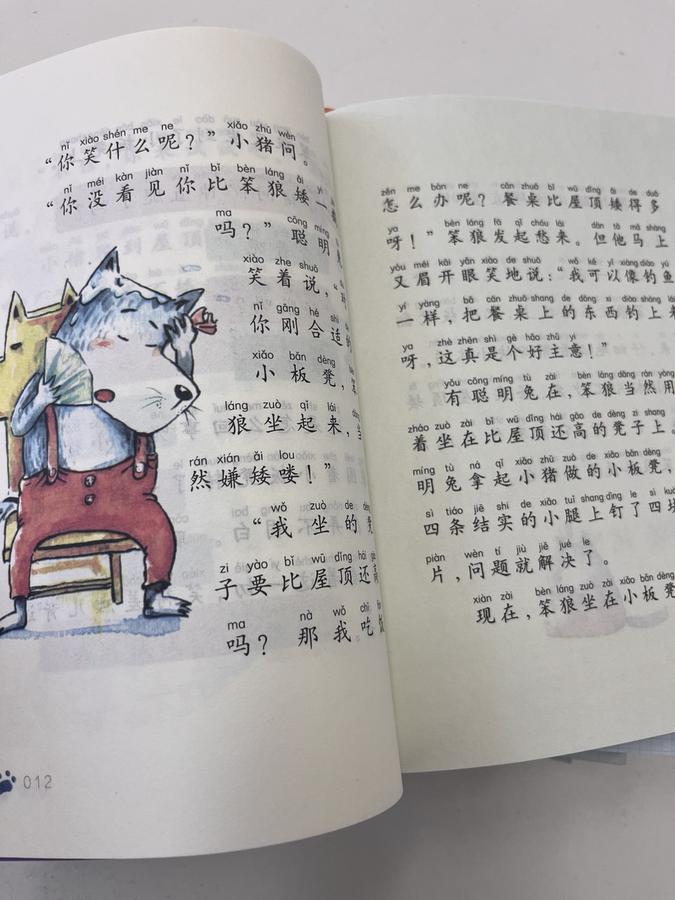 nǐ xiào shén me ne xiǎo zhū wèn
“你笑什么呢？”小猪问。
nǐ méi kàn jiàn nǐ bǐ bèn láng ǎi yí
“你没看见你比笨狼矮一
ma cōng míng
吗？”聪明
xiào zhe shuō
笑着说，“
nǐ gāng hé shì
你刚合适
xiǎo bǎn dèng
小板凳，
láng zuò qǐ lái
狼坐起来，
rán xián ǎi lou
然嫌矮喽！”
wǒ zuò de
“我坐的
zi yào bǐ wū dǐng hái
子要比屋顶还高
ma nà wǒ chī
吗？那我吃
012
zěn me bàn ne cān zhuō bǐ wū dǐng ǎi de duō
怎么办呢？餐桌比屋顶矮得多
ya bèn láng fā qǐ chóu lái dàn tā mǎ shàng
呀！”笨狼发起愁来。但他马上
yòu méi kāi yǎn xiào de shuō wǒ kě yǐ xiàng diào yú
又眉开眼笑地说：“我可以像钓鱼
yí yàng bǎ cān zhuō shang de dōng xi diào shàng lái
一样，把餐桌上的东西钓上来
ya zhè zhēn shì gè hǎo zhǔ yi
呀，这真是个好主意！”
yǒu cōng míng tù zài bèn láng dāng rán yòng
有聪明兔在，笨狼当然用
zháo zuò zài bǐ wū dǐng hái gāo de dèng zi shang
着坐在比屋顶还高的凳子上。
míng tù ná qǐ xiǎo zhū zuò de xiǎo bǎn dèng
明兔拿起小猪做的小板凳，
sì tiáo jiē shi de xiǎo tuǐ shang dīng le sì kuài
四条结实的小腿上钉了四块
piàn wèn tí jiù jiě jué le
片，问题就解决了。
xiàn zài bèn láng zuò zài xiǎo bǎn dèng
现在，笨狼坐在小板凳